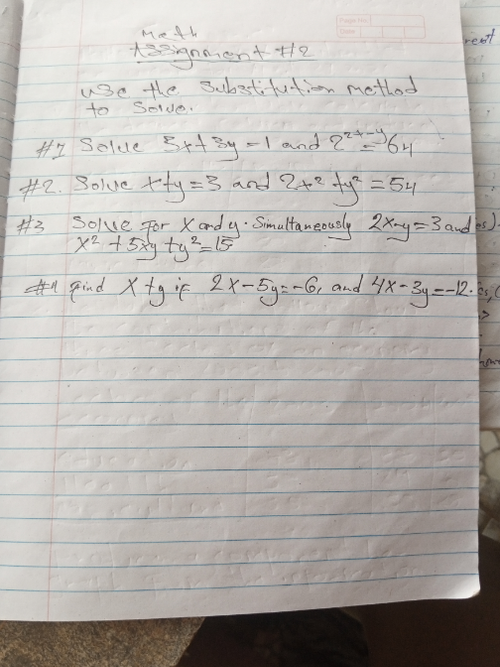 Page No.
Date
Math
Assignment #2
use the substitution method
to solve.
#1 Solve 3x+3y=1 and 2^2x-y=64
#2. Solve x+y=3 and 2x²+y²=54
#3 Solve for x and y. Simultaneously 2x-y=3 and
x²+5xy+y²=15
#4 find x+y if 2x-5y=-6, and 4x-3y=-12.